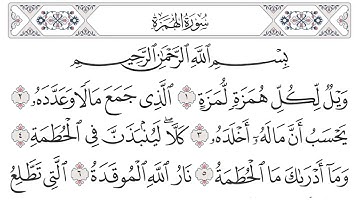 سُورَةُ الهُمَزَةِ
بِسْمِ اللَّهِ الرَّحْمَٰنِ الرَّحِيمِ
وَيْلٌ لِّكُلِّ هُمَزَةٍ لُّمَزَةٍ ١ الَّذِي جَمَعَ مَالًا وَعَدَّدَهُ ٢
يَحْسَبُ أَنَّ مَالَهُ أَخْلَدَهُ ٣ كَلَّا ۖ لَيُنبَذَنَّ فِي الْحُطَمَةِ ٤
وَمَا أَدْرَاكَ مَا الْحُطَمَةُ ٥ نَارُ اللَّهِ الْمُوقَدَةُ ٦ الَّتِي تَطَّلِعُ